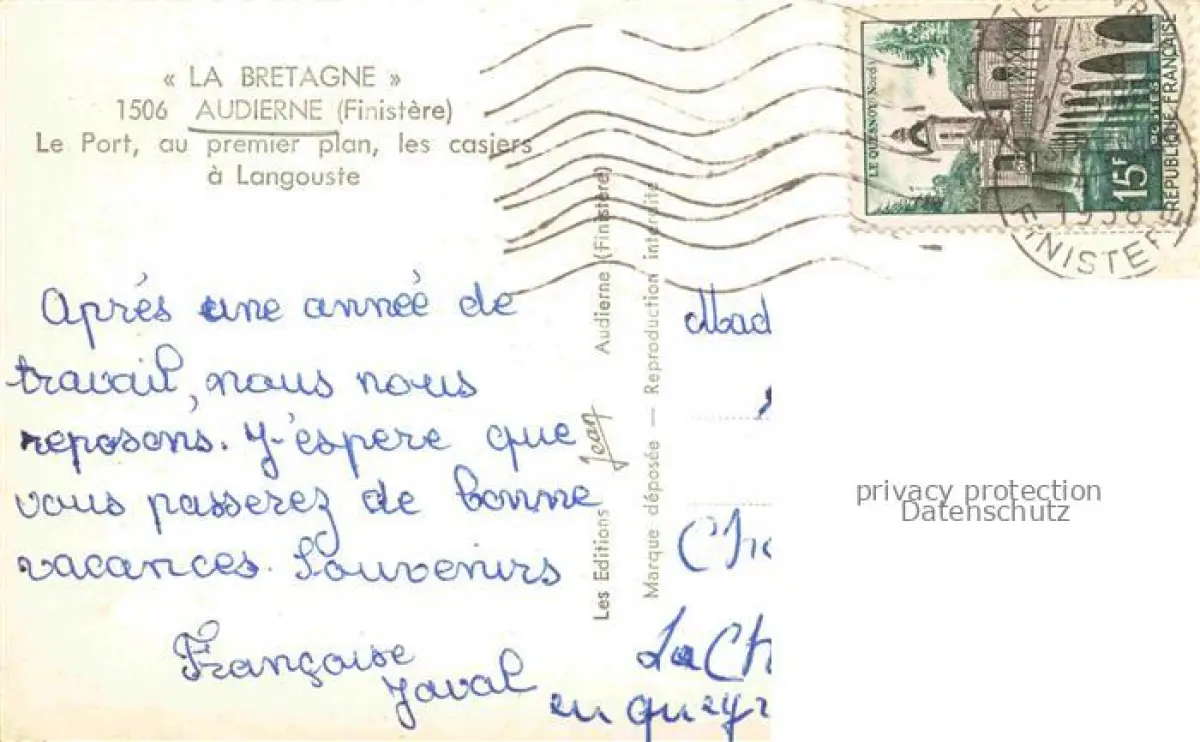 « LA BRETAGNE »
1506 AUDIERNE (Finistère)
Le Port, au premier plan, les casiers
à Langouste
Aprés une année de
travail, nous nous
reposons. J'éspere que
vous passerez de bonne
vacances. Souvenirs
Françoise
Javal
Les Editions Jean Audierne (Finistère)
Marque déposée — Reproduction interdite
LE QUESNOY (Nord)
15F
POSTES
REPUBLIQUE FRANÇAISE
1958
FINISTERE
Mad
La Ch
en queyr
privacy protection
Datenschutz